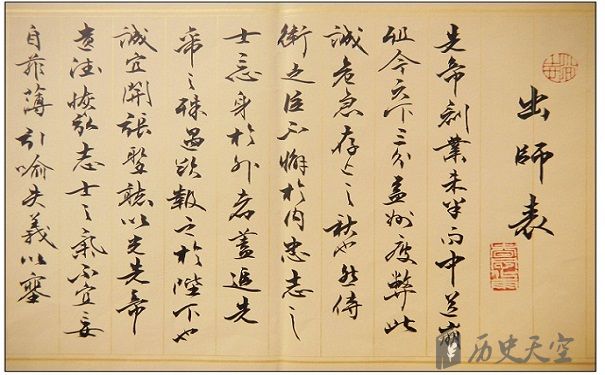 出師表
先帝創業未半而中道崩
殂今天下三分益州疲弊此
誠危急存亡之秋也然侍
衛之臣不懈於內忠志之
士忘身於外者蓋追先
帝之殊遇欲報之於陛下也
誠宜開張聖聽以光先帝
遺德恢弘志士之氣不宜妄
自菲薄引喻失義以塞
历史天空